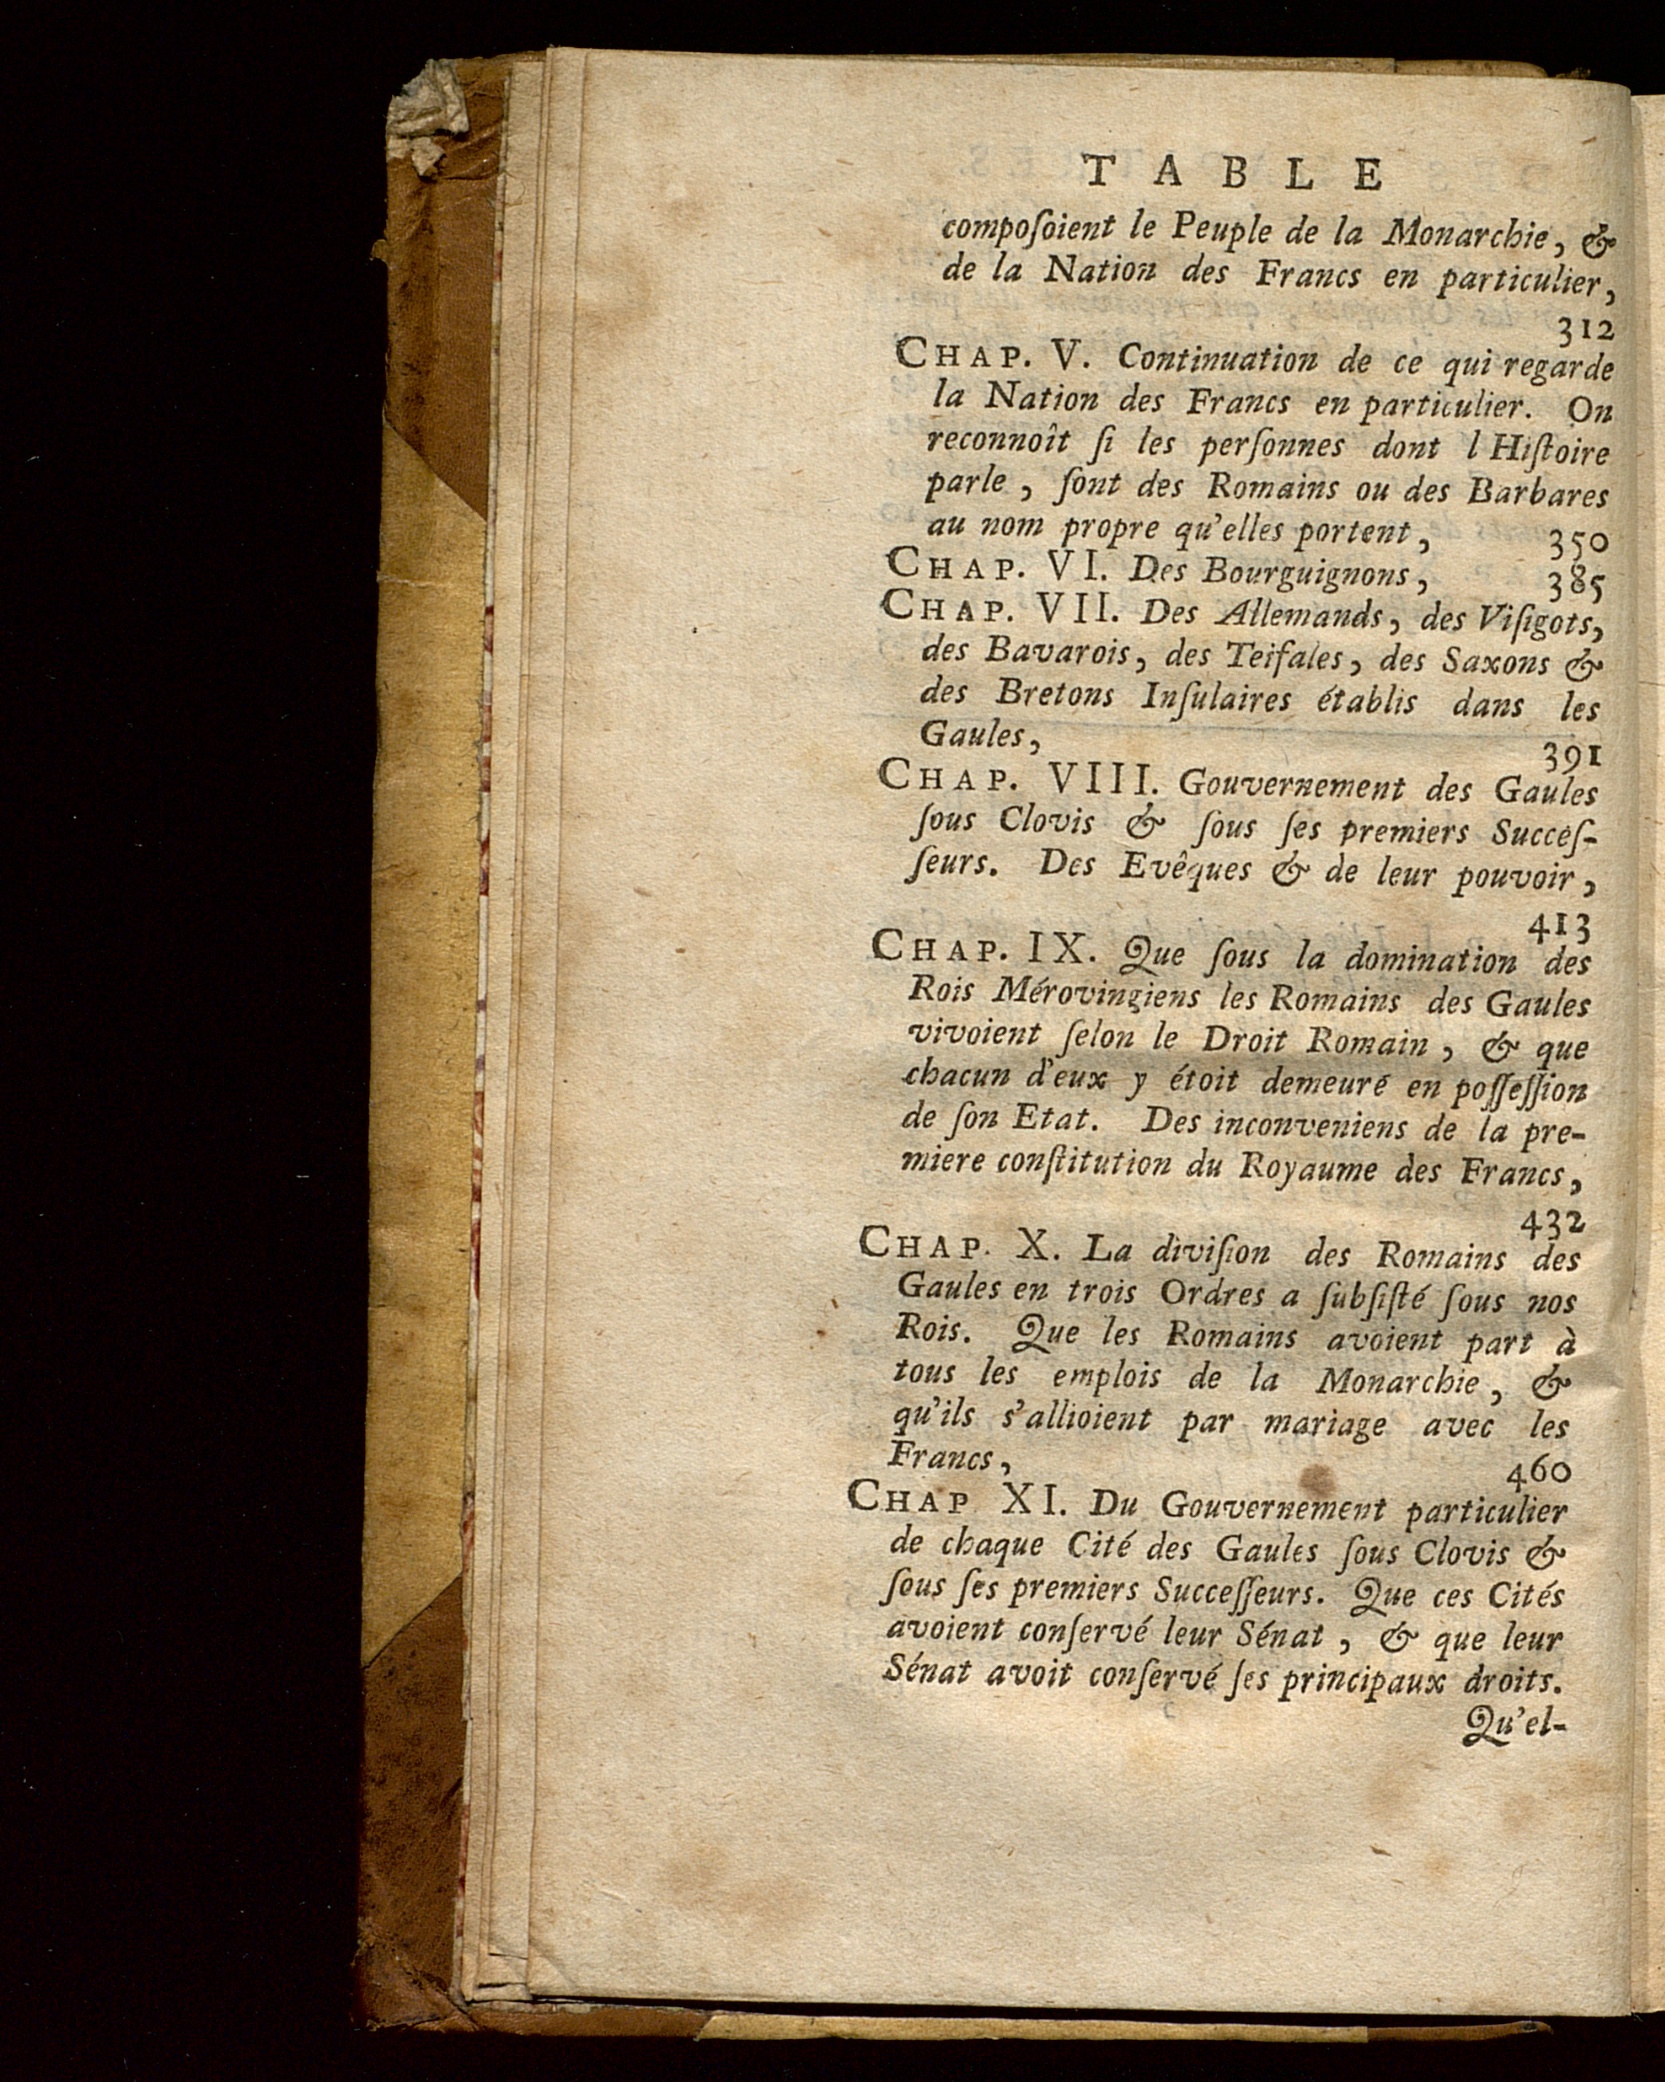 TABLE
compoſoient le Peuple de la Monarchie, &
de la Nation des Francs en particulier,
312
CHAP. V. Continuation de ce qui regarde
la Nation des Francs en particulier. On
reconnoît ſi les perſonnes dont l Hiſtoire
parle, ſont des Romains ou des Barbares
au nom propre qu'elles portent, 350
CHAP. VI. Des Bourguignons, 385
CHAP. VII. Des Allemands, des Viſigots,
des Bavarois, des Teifales, des Saxons &
des Bretons Inſulaires établis dans les
Gaules, 391
CHAP. VIII. Gouvernement des Gaules
ſous Clovis & ſous ſes premiers Succeſ-
ſeurs. Des Evêques & de leur pouvoir,
413
CHAP. IX. Que ſous la domination des
Rois Mérovingiens les Romains des Gaules
vivoient ſelon le Droit Romain, & que
chacun d'eux y étoit demeuré en poſſeſſion
de ſon Etat. Des inconveniens de la pre-
miere conſtitution du Royaume des Francs,
432
CHAP. X. La diviſion des Romains des
Gaules en trois Ordres a ſubſiſté ſous nos
Rois. Que les Romains avoient part à
tous les emplois de la Monarchie, &
qu'ils s'allioient par mariage avec les
Francs, 460
CHAP XI. Du Gouvernement particulier
de chaque Cité des Gaules ſous Clovis &
ſous ſes premiers Succeſſeurs. Que ces Cités
avoient conſervé leur Sénat, & que leur
Sénat avoit conſervé ſes principaux droits.
Qu'el-